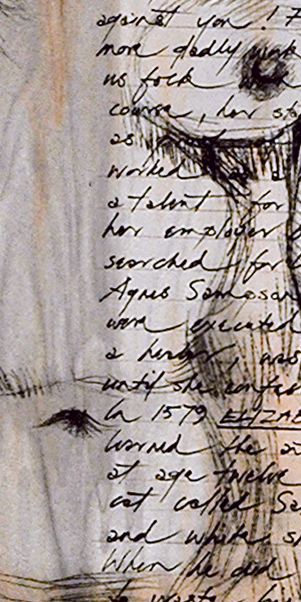 against you! F
more deadly
us folk
course, her sto
as
worked as a
a talent for
her employer
searched for
Agnes Sampson
were executed
a healer, was
until she confes
In 1579 ELIZAB
learned the a
at age twelve
cat called Sa
and white s
When he did
to waste